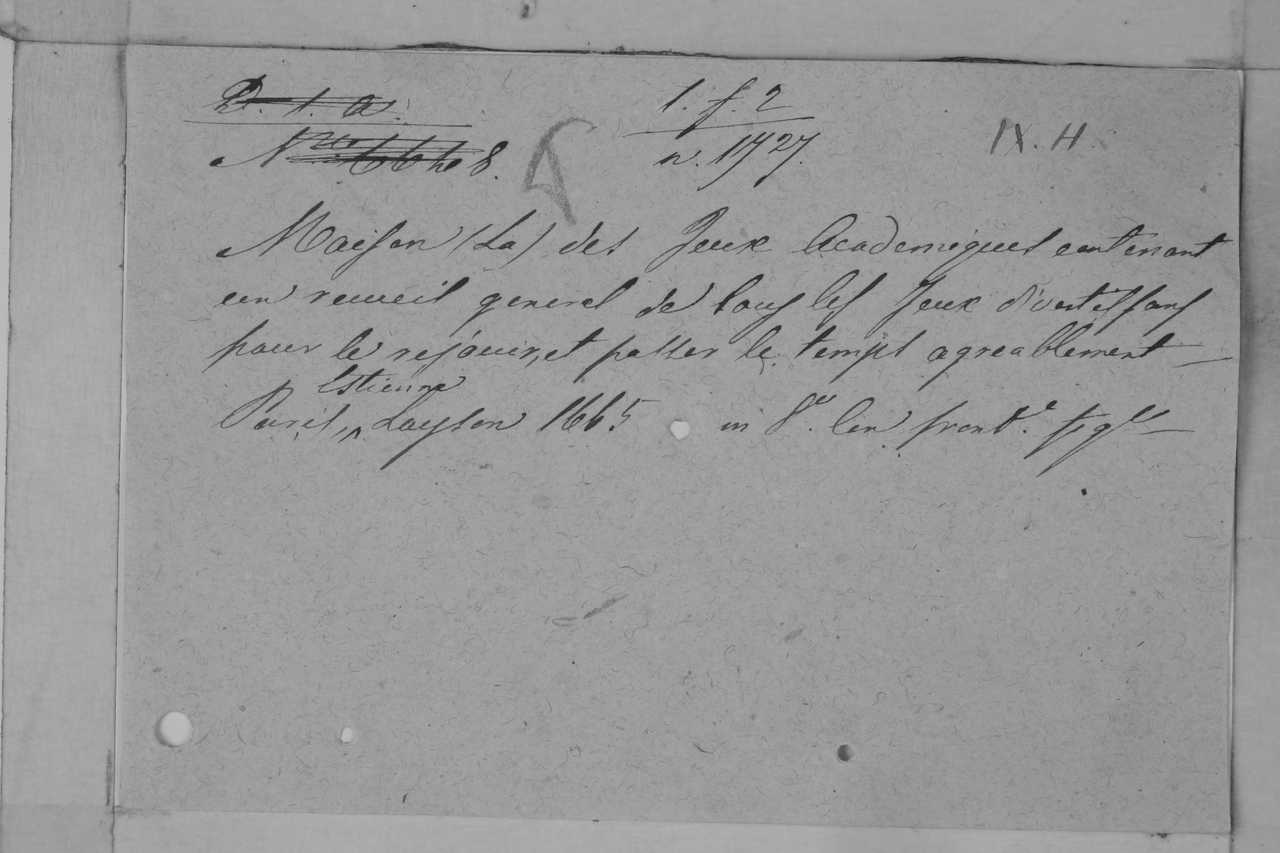 D. 1. a.
1. f. 2
N 8.
n. 1727.
IX. H
Maison (La) des Jeux Academiques contenant
un recueil general de tous les Jeux divertissans
pour le rejouir, et passer le temps agreablement
Estienne
Paris, Loyson 1665 in 8.º Con front.e fig.